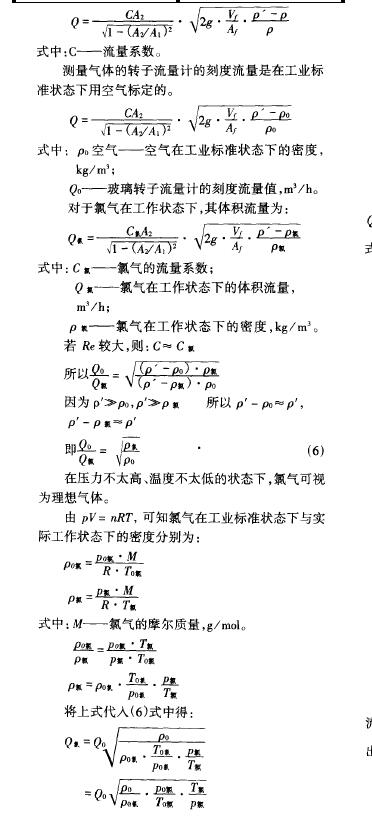 Q = CA₂/√(1-(A₂/A₁)²) · √(2g · V_f/A_f · (ρ′-ρ)/ρ)
式中:C——流量系数。
测量气体的转子流量计的刻度流量是在工业标
准状态下用空气标定的。
Q = CA₂/√(1-(A₂/A₁)²) · √(2g · V_f/A_f · (ρ′-ρ₀)/ρ₀)
式中: ρ₀空气——空气在工业标准状态下的密度,
kg/m³;
Q₀——玻璃转子流量计的刻度流量值,m³/h。
对于氯气在工作状态下,其体积流量为:
Q氯 = C氯A₂/√(1-(A₂/A₁)²) · √(2g · V_f/A_f · (ρ′-ρ氯)/ρ氯)
式中: C氯——氯气的流量系数;
Q氯——氯气在工作状态下的体积流量,
m³/h;
ρ氯——氯气在工作状态下的密度,kg/m³。
若 Re 较大,则: C≈C氯
所以 Q₀/Q氯 = √((ρ′-ρ₀)·ρ氯/((ρ′-ρ氯)·ρ₀))
因为 ρ′≫ρ₀,ρ′≫ρ氯 所以 ρ′-ρ₀≈ρ′,
ρ′-ρ氯≈ρ′
即 Q₀/Q氯 = √(ρ氯/ρ₀) (6)
在压力不太高、温度不太低的状态下,氯气可视
为理想气体。
由 pV=nRT, 可知氯气在工业标准状态下与实
际工作状态下的密度分别为:
ρ₀氯 = p₀氯·M/(R·T₀氯)
ρ氯 = p氯·M/(R·T氯)
式中: M——氯气的摩尔质量,g/mol。
ρ₀氯/ρ氯 = p₀氯·T氯/(p氯·T₀氯)
ρ氯 = ρ₀氯 · T₀氯/p₀氯 · p氯/T氯
将上式代入(6)式中得:
Q氯 = Q₀√(ρ₀/(ρ₀氯 · T₀氯/p₀氯 · p氯/T氯))
= Q₀√(ρ₀/ρ₀氯 · p₀氯/T₀氯 · T氯/p氯)